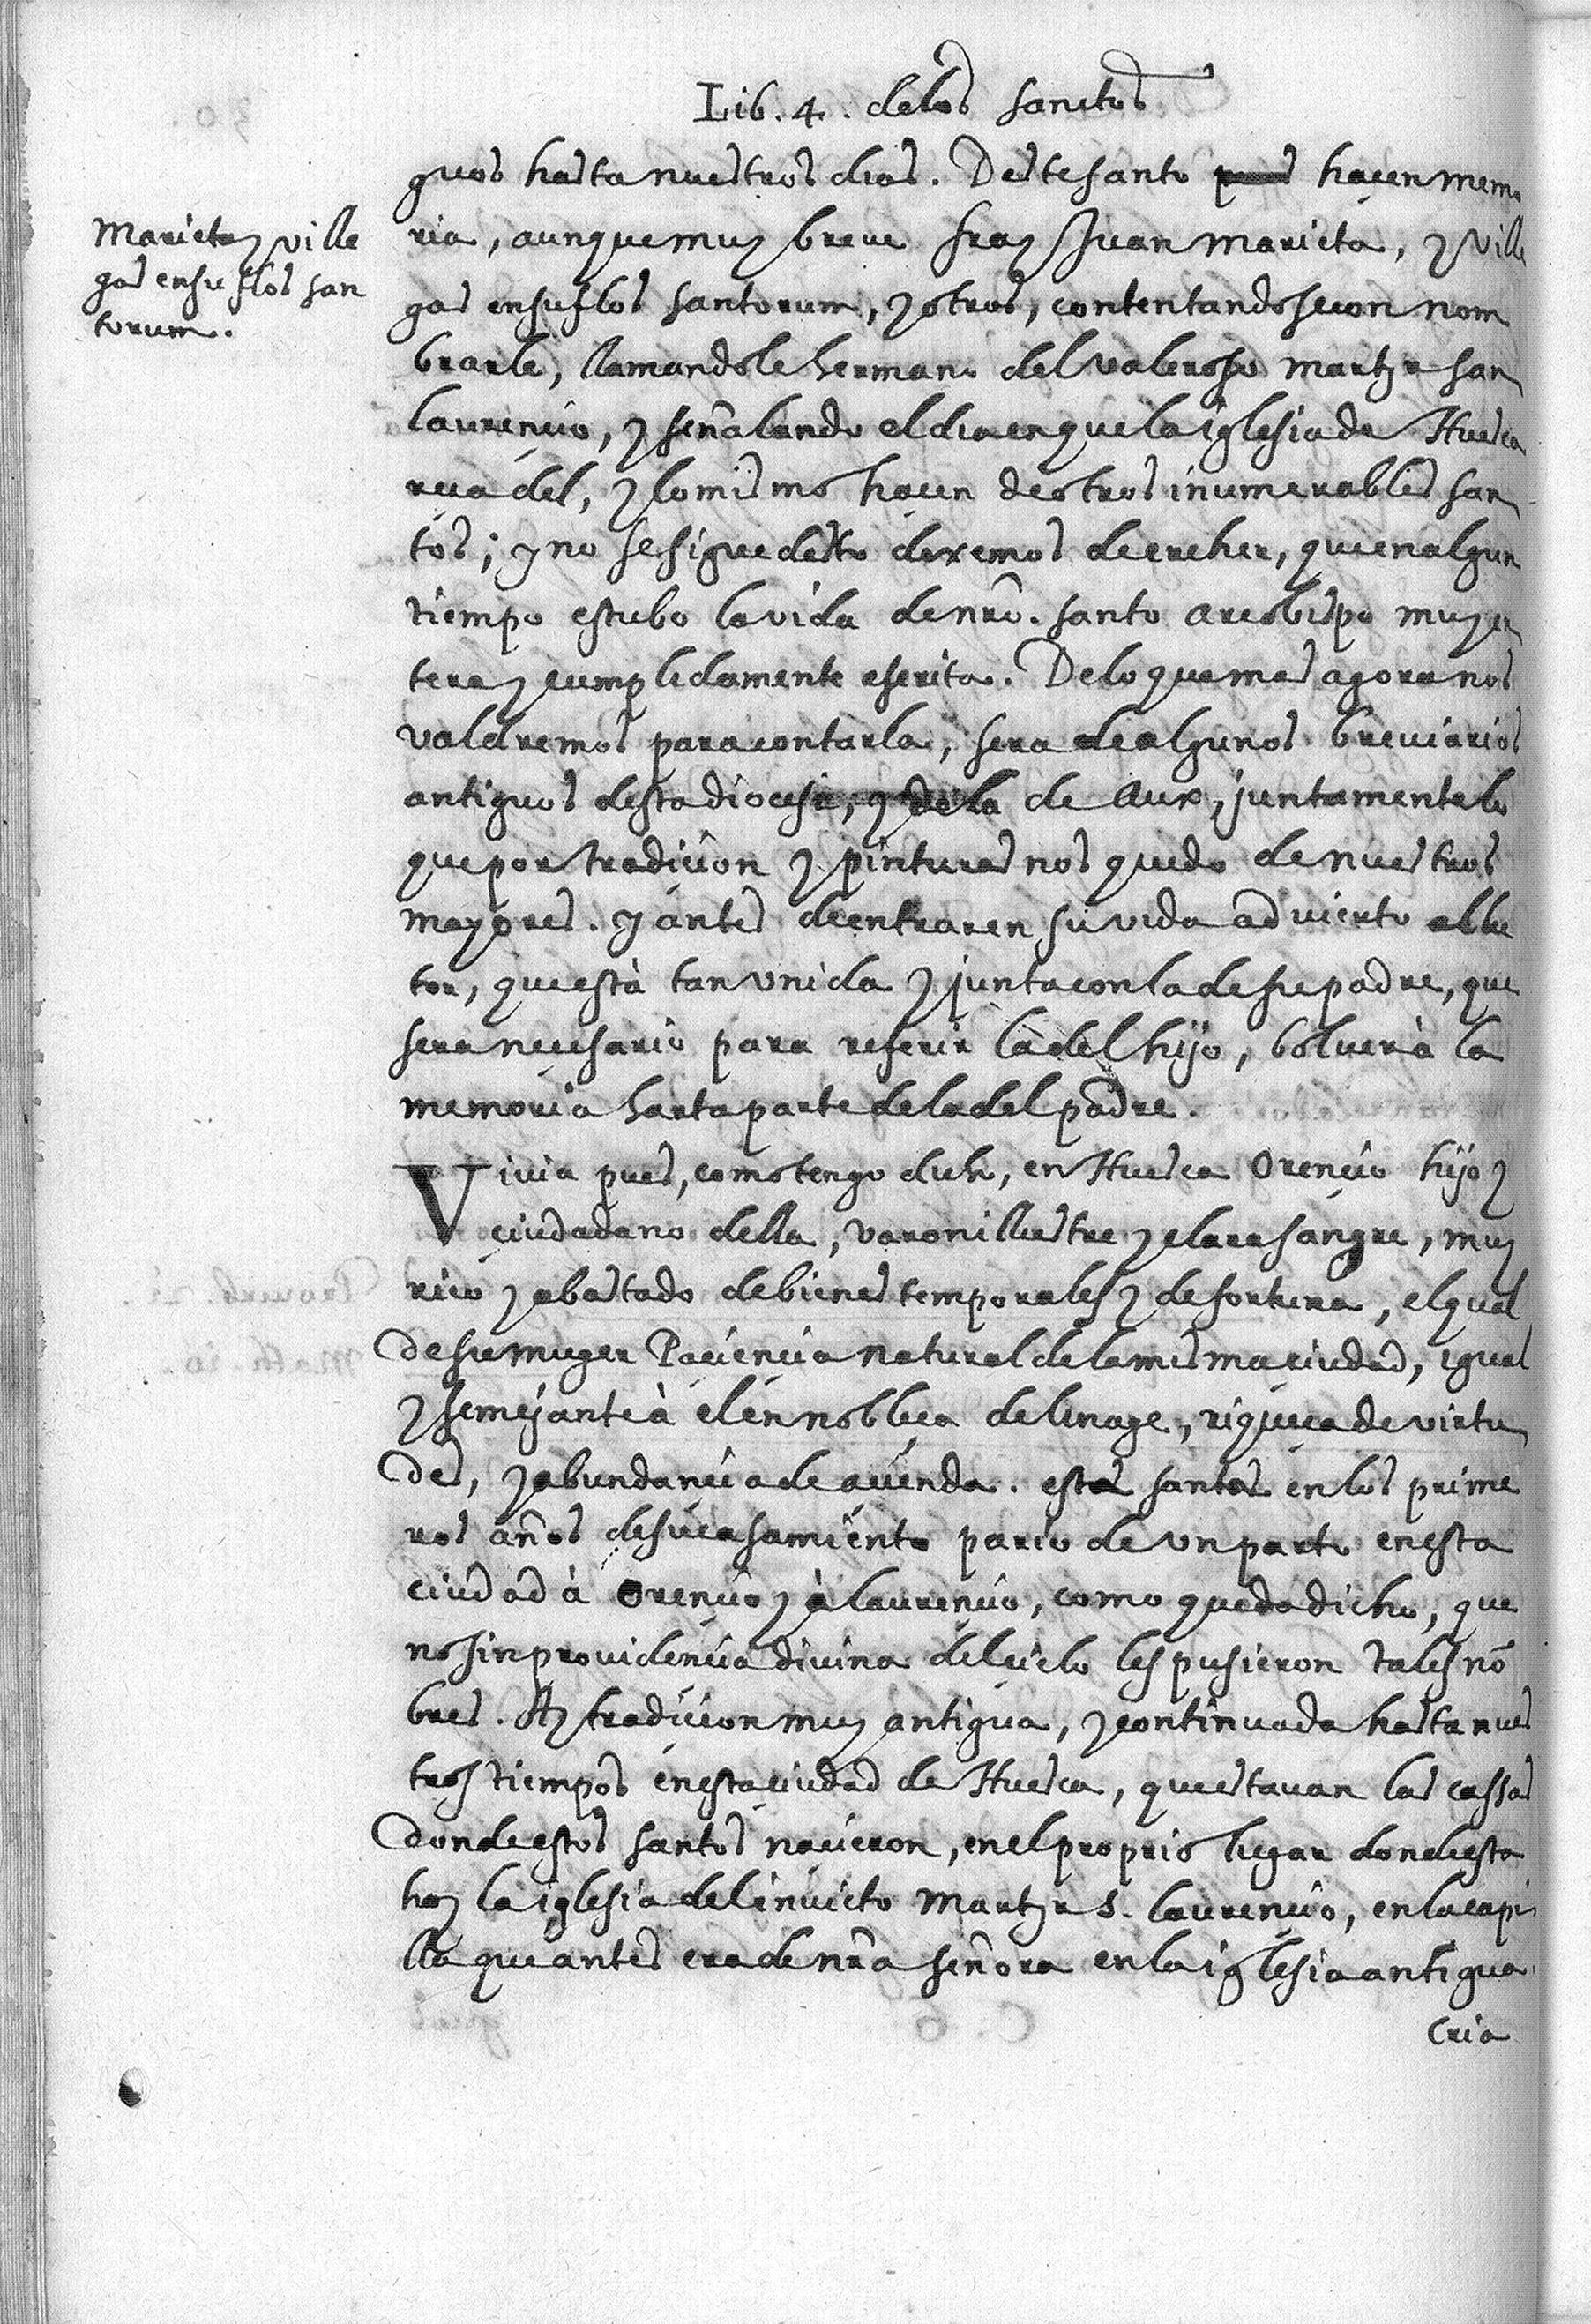 Lib. 4. delos sanctos
guos hasta nuestros dias. Deste santo haçen memo
ria, aunque muy breue fray Juan Marieta, y Ville
gas en su flos santorum, y otros, contentandose con nom
brarle, llamandole hermano del valeroso martyr san
Laurençio, y señalando el dia en que la iglesia de Huesca
reça dél, y lo mismo haçen de otros inumerables san
tos; y no se sigue desto dexemos de creher, que en algun
tiempo estubo la vida de nrõ. santo arcobispo muy en
tera y cumplidamente escrita. De lo que mas agora nos
valdremos para contarla, sera de algunos breviarios
antiguos desta diocesi, y de la de Aux, juntamente lo
que por tradiçion y pinturas nos quedo de nuestros
mayores. y antes de entrar en su vida advierto al lec
tor, que està tan unida y junta con la de su padre, que
sera neçesario para referir la del hijo, bolver à la
memoria harta parte de la del padre.
Viuia pues, como tengo dicho, en Huesca Orençio hijo y
çiudadano della, varon illustre y clara sangre, muy
rico y abastado de bienes temporales y de fortuna, el qual
de su muger Paçiençia natural de la misma çiudad, igual
y semejante à el en nobleça de linage, riqueça de virtu
des, y abundançia de açienda. esta santa en los prime
ros años de su casamiento pario de un parto en esta
ciudad à Orençio y à Laurençio, como queda dicho, que
no sin providençia divina del çielo les pusieron tales nõ
bres. Ay tradiçion muy antigua, y continuada hasta nues
tros tiempos en esta çiudad de Huesca, que estauan las cassas
donde estos santos naçieron, en el proprio lugar donde esta
hoy la iglesia del inuicto Martyr S. Laurençio, en la capi
lla que antes era de nr̃a señora en la iglesia antigua.
Cria
Marieta y Ville
gas en su flos san
torum.